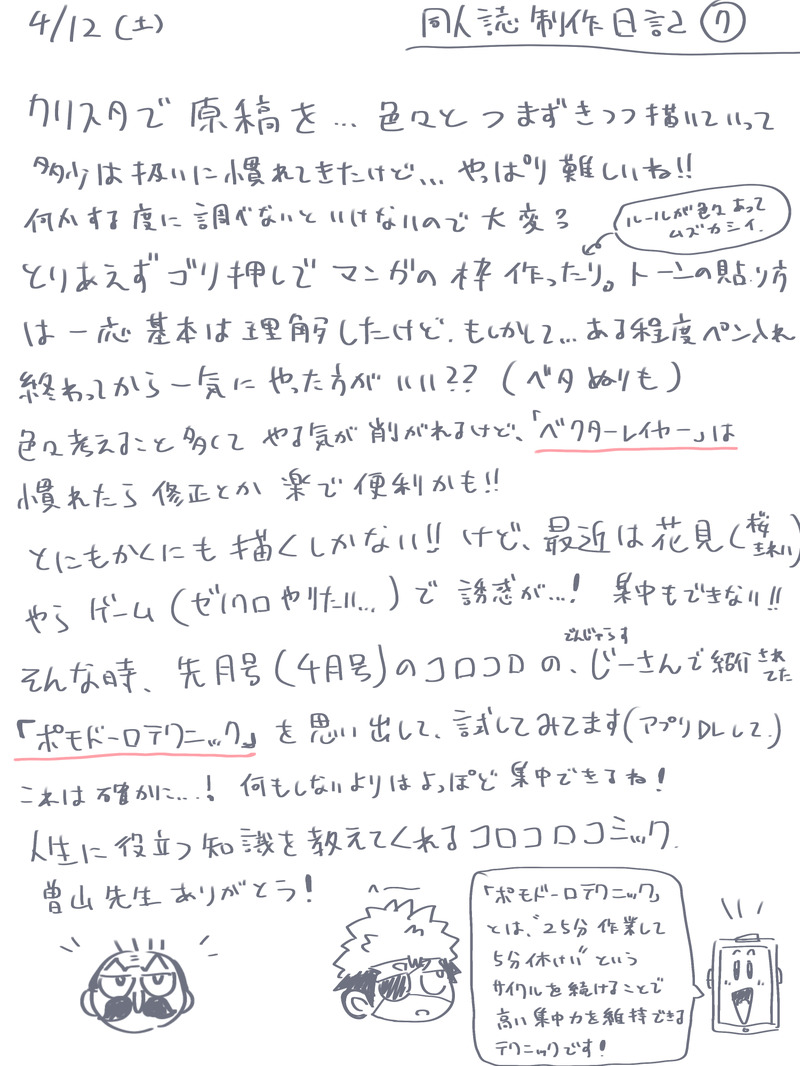 4/12(土)
同人誌制作日記⑦
クリスタで原稿を…色々とつまずきつつ描いていって
多少は扱いに慣れてきたけど… やっぱり難しいね!!
何かする度に調べないといけないので大変?
ルールが色々あって
ムズカシイ.
とりあえずゴリ押しでマンガの枠作ったり。トーンの貼り方
は一応基本は理解したけど.もしかして…ある程度ペン入れ
終わってから一気にやった方がいい??(ベタぬりも)
色々考えること多くてやる気が削がれるけど、「ベクターレイヤー」は
慣れたら修正とか楽で便利かも!!
とにもかくにも描くしかない!!けど、最近は花見(桜きれい)
やらゲーム(ゼノクロやりたい…)で誘惑が…!集中もできない!!
でんじゃらす
そんな時、先月号(4月号)のコロコロの、じーさんで紹介されてた
「ポモドーロテクニック」を思い出して、試してみてます(アプリDLして.)
これは確かに…!何もしないよりはよっぽど集中できるね!
人生に役立つ知識を教えてくれるコロコロコミック.
曽山先生ありがとう!
「ポモドーロテクニック」
とは、"25分作業して
5分休けい"という
サイクルを続けることで
高い集中力を維持できる
テクニックです!